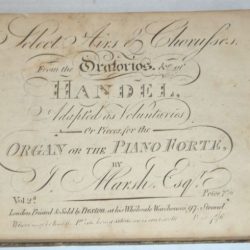 Select Airs & Chorusses,
From the Oratorios, &c. of
HANDEL,
Adapted as Voluntaries
Or Pieces for the
ORGAN OR THE PIANO FORTE,
BY
J. Marsh, Esqr.
Vol 2d.
Price 7/6
London Printed & Sold by PRESTON, at his Wholesale Warehouses 97, Strand